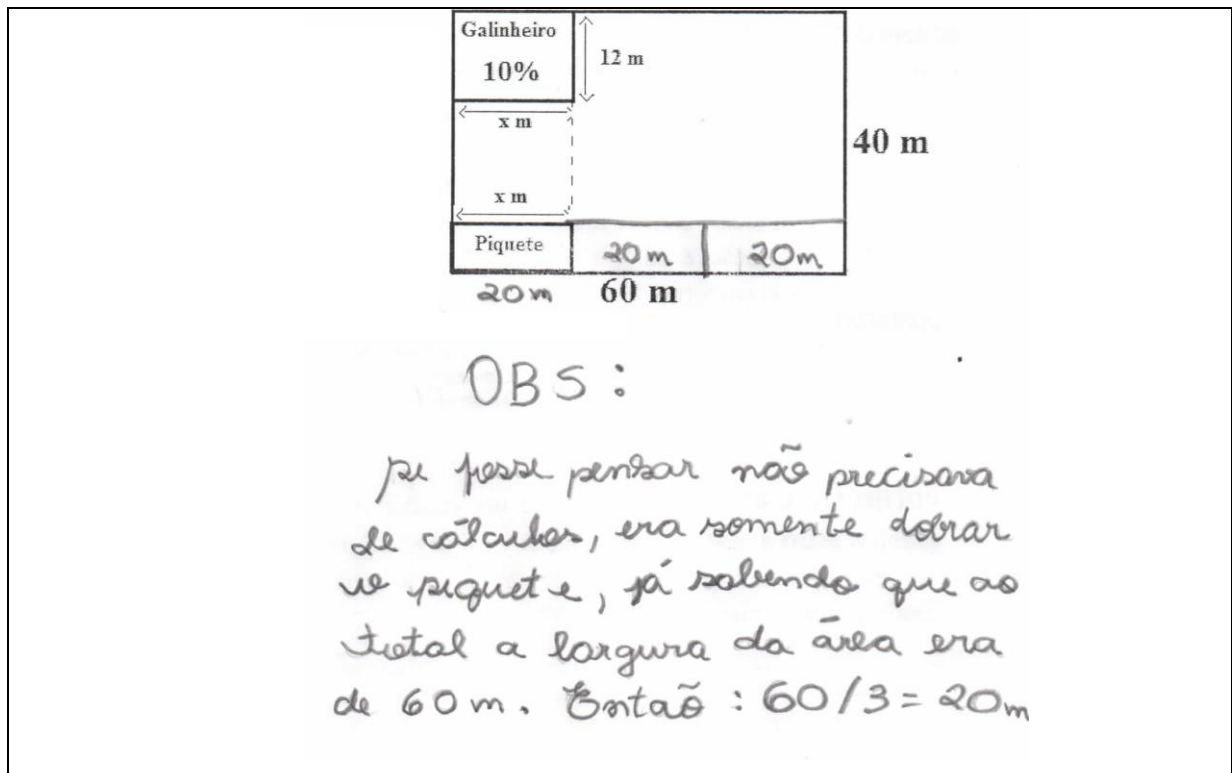 Galinheiro
10%
12 m
x m
40 m
x m
Piquete
20 m
20 m
20 m
60 m
OBS:
se fosse pensar não precisava
de cálculos, era somente dobrar
o piquete, já sabendo que ao
total a largura da área era
de 60 m. Então : 60/3 = 20m